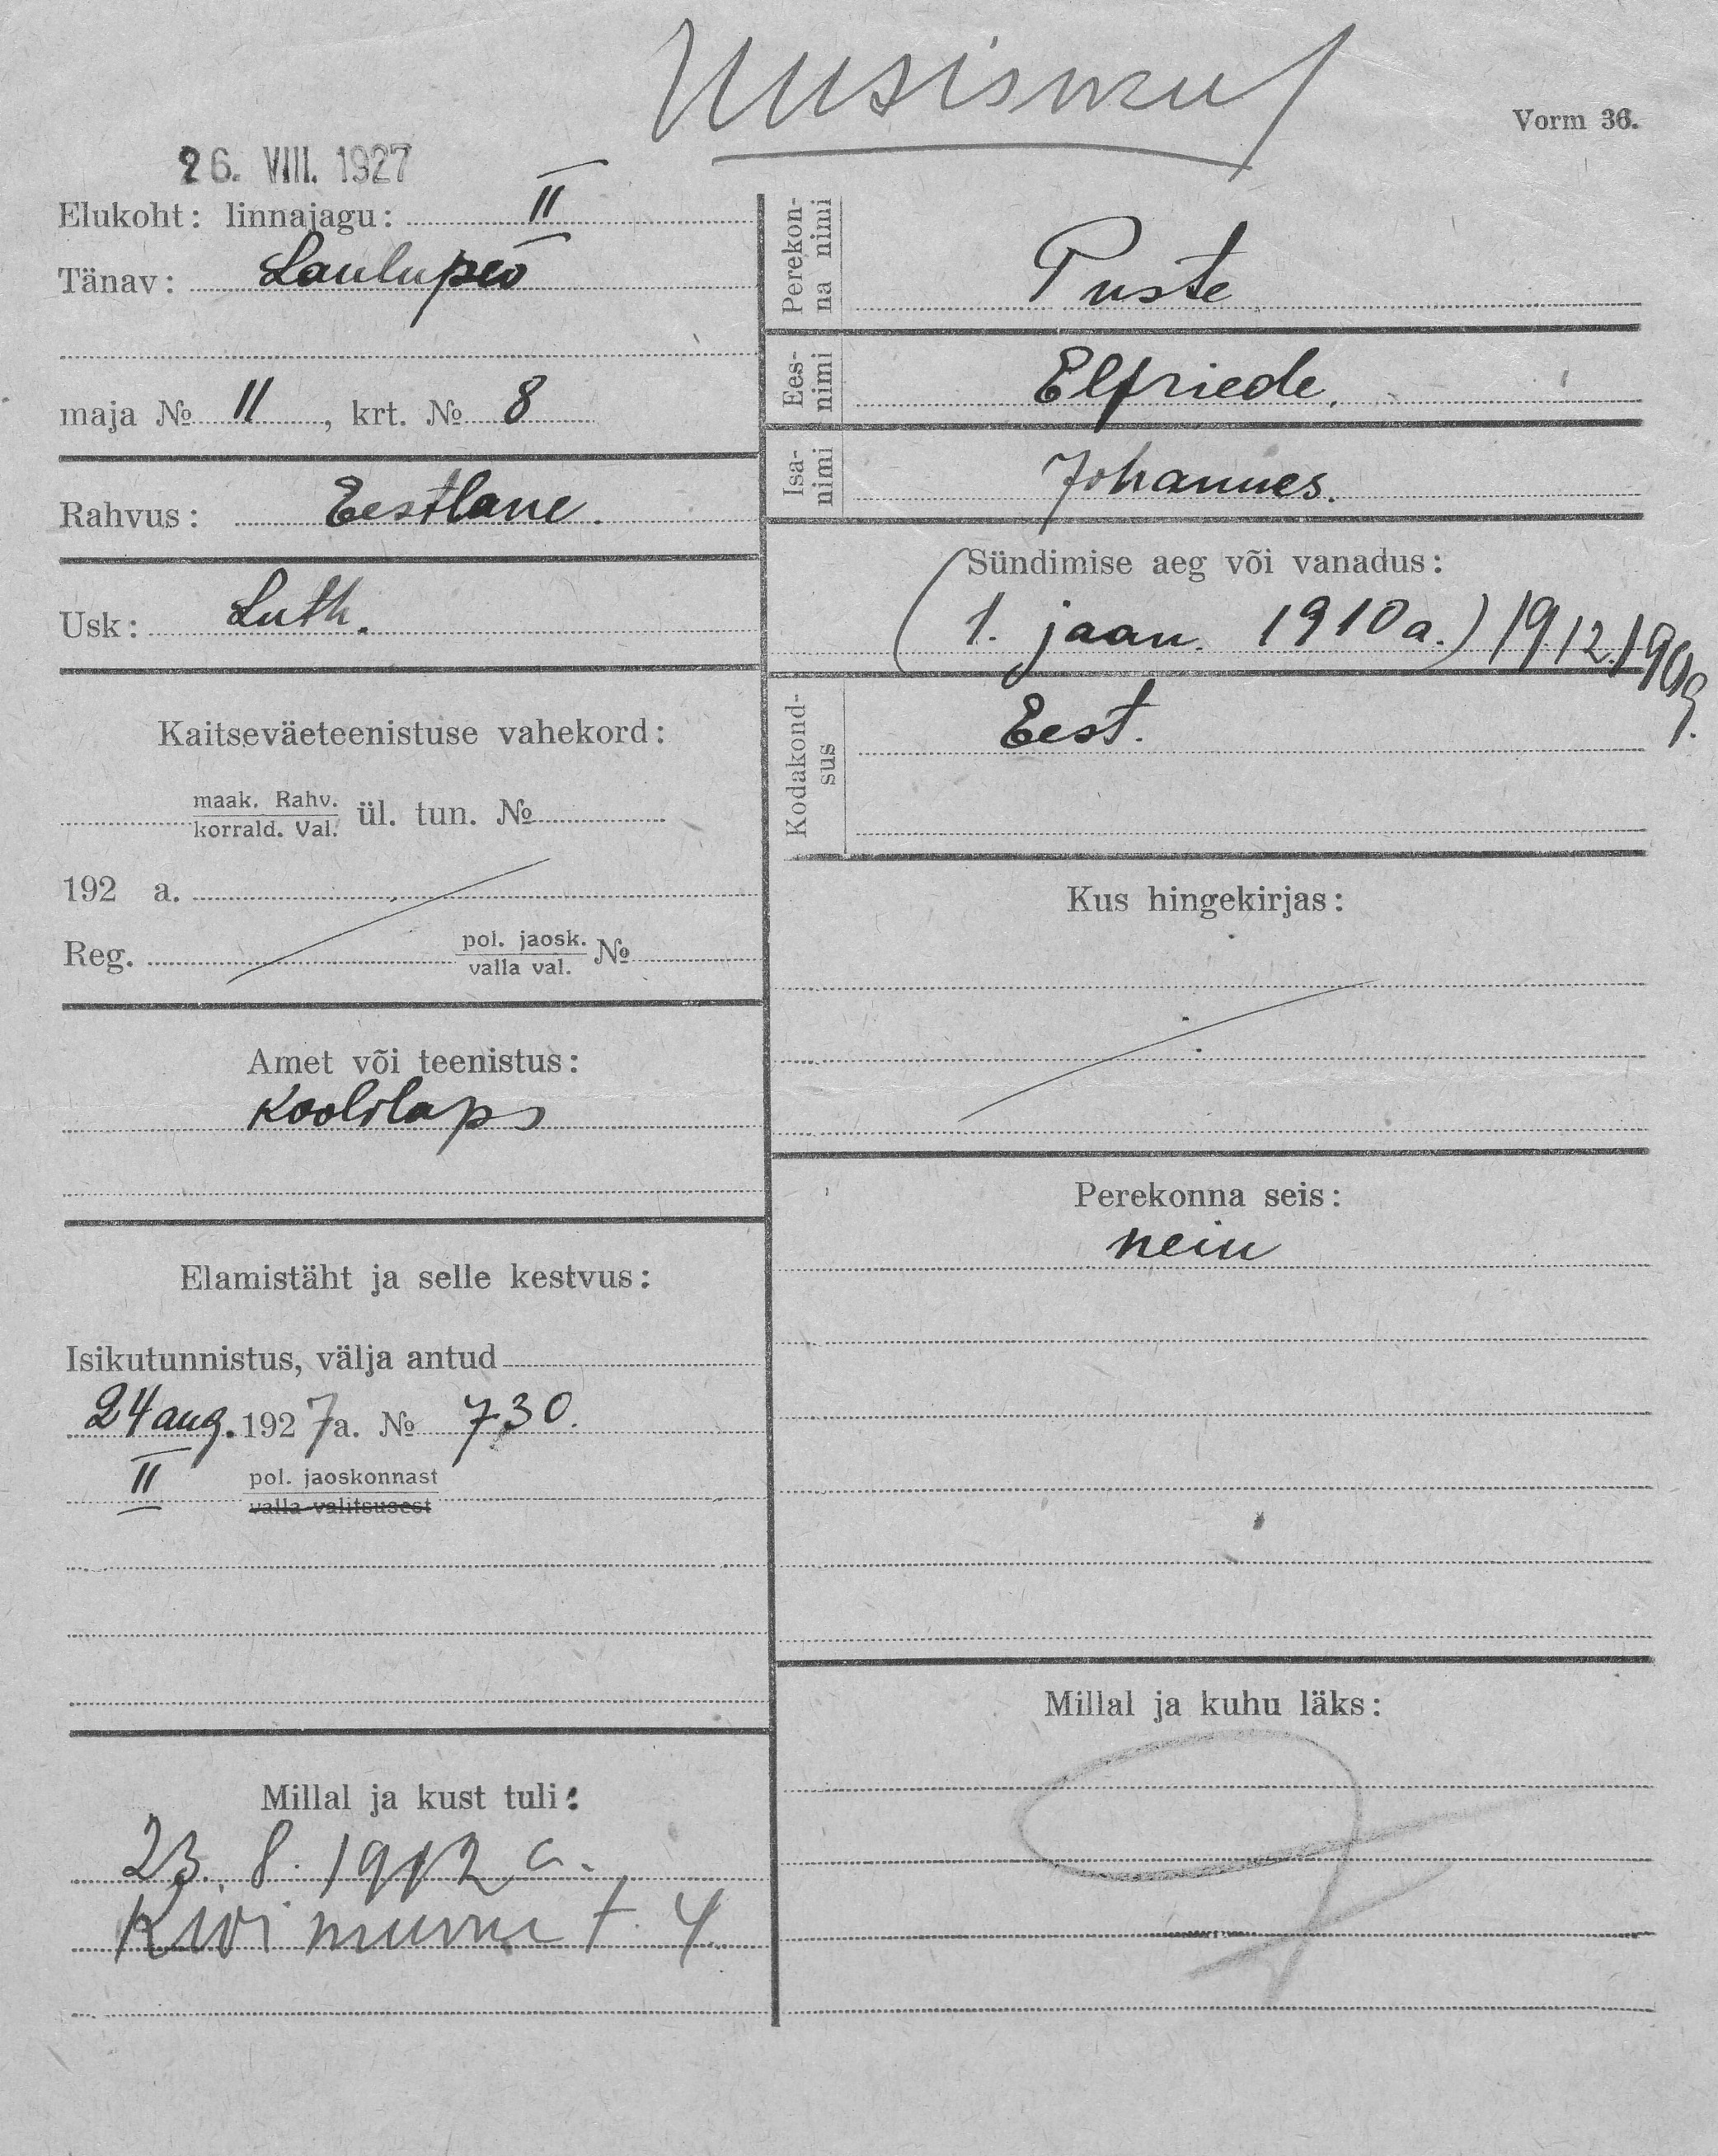 Vorm 36.
26. VIII. 1927
Elukoht: linnajagu: II
Tänav: Laulupeo
maja № 11, krt. № 8
Rahvus: Eestlane.
Usk: Luth.
Kaitseväeteenistuse vahekord:
maak. Rahv.
korrald. Val. ül. tun. №
192 a.
Reg. pol. jaosk. №
valla val.
Amet või teenistus:
Koolilaps
Elamistäht ja selle kestvus:
Isikutunnistus, välja antud
24 aug. 1927 a. № 730.
II pol. jaoskonnast
valla valitsusest
Millal ja kust tuli:
23. 8. 1912 a.
Kivi t. 4
Perekonna nimi
Puste
Eesnimi
Elfriede.
Isanimi
Johannes.
Sündimise aeg või vanadus:
(1. jaan. 1910 a.) 19.12.1909.
Kodakondsus
Eest.
Kus hingekirjas:
Perekonna seis:
neiu
Millal ja kuhu läks: